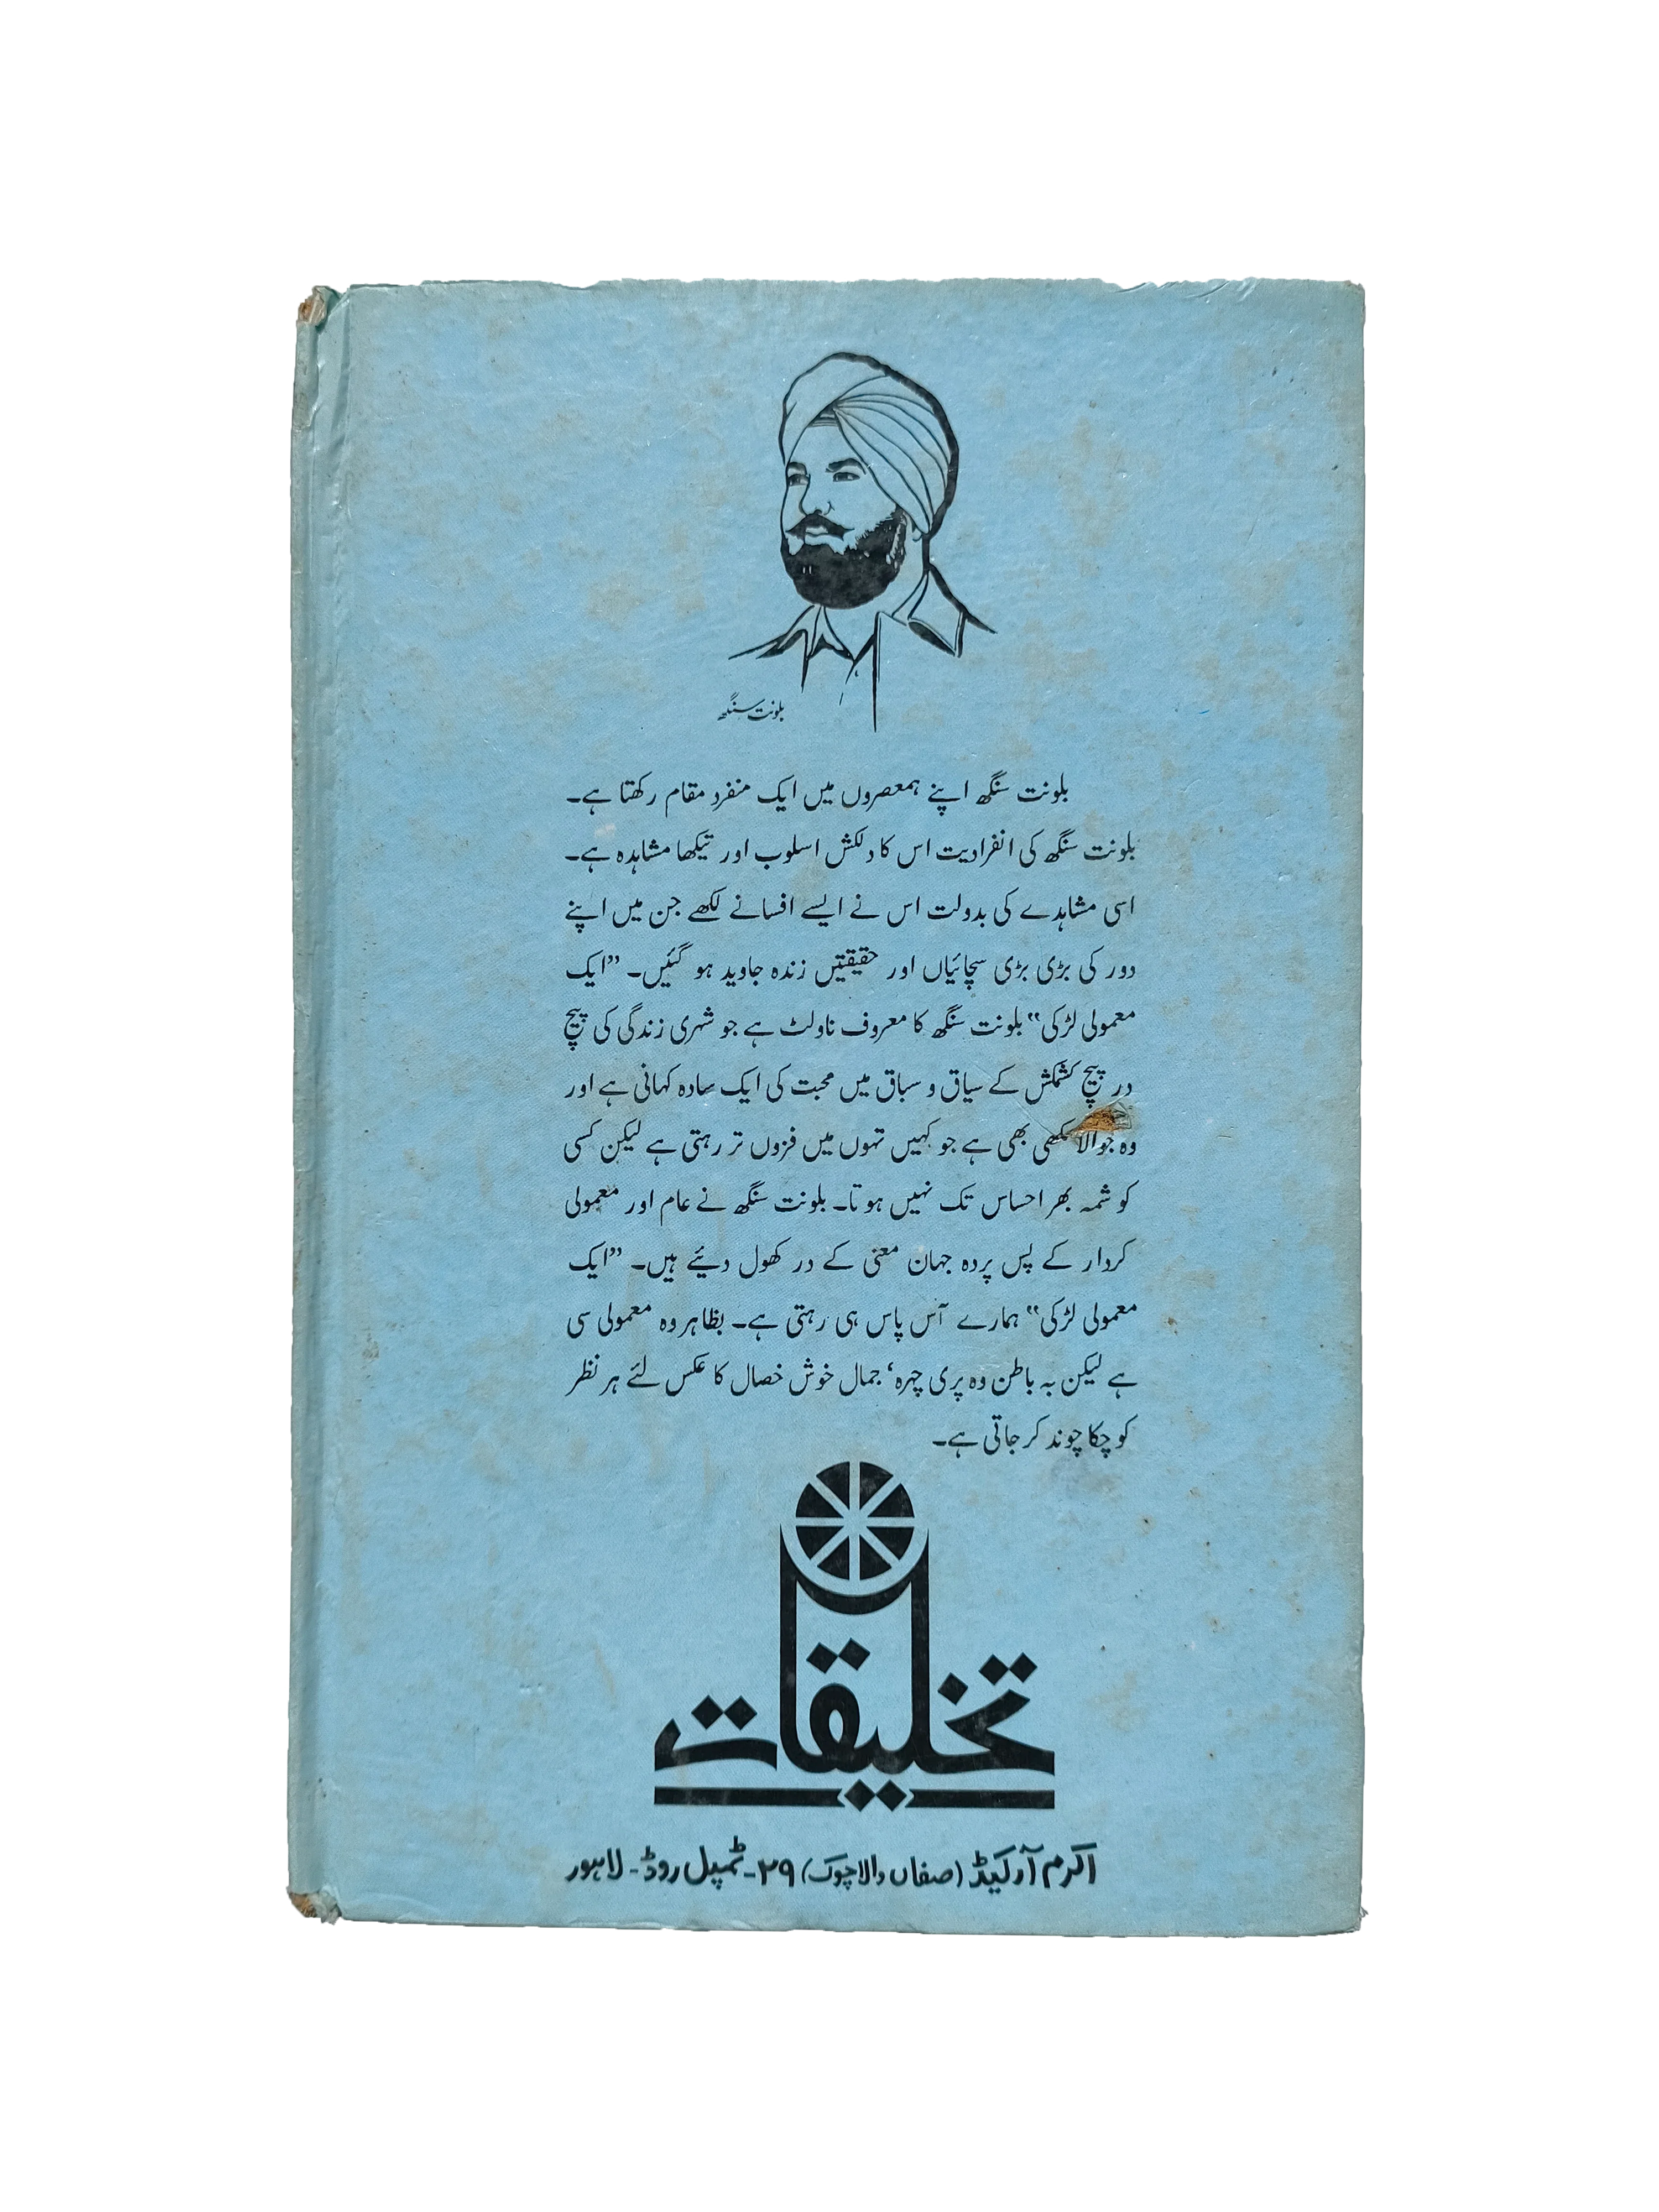 بلونت سنگھ
بلونت سنگھ اپنے ہمعصروں میں ایک منفرد مقام رکھتا ہے۔
بلونت سنگھ کی انفرادیت اس کا دلکش اسلوب اور تیکھا مشاہدہ ہے۔
اسی مشاہدے کی بدولت اس نے ایسے افسانے لکھے جن میں اپنے
دور کی بڑی بڑی سچائیاں اور حقیقتیں زندہ جاوید ہو گئیں۔ ”ایک
معمولی لڑکی“ بلونت سنگھ کا معروف ناولٹ ہے جو شہری زندگی کی پیچ
در پیچ کشمکش کے سیاق و سباق میں محبت کی ایک سادہ کہانی ہے اور
وہ جوالا مکھی بھی ہے جو کہیں تہوں میں فزوں تر رہتی ہے لیکن کسی
کو شمہ بھر احساس تک نہیں ہوتا۔ بلونت سنگھ نے عام اور معمولی
کردار کے پس پردہ جہان معنی کے در کھول دیئے ہیں۔ ”ایک
معمولی لڑکی“ ہمارے آس پاس ہی رہتی ہے۔ بظاہر وہ معمولی سی
ہے لیکن بہ باطن وہ پری چہرہ، جمال خوش خصال کا عکس لئے ہر نظر
کو چکا چوند کر جاتی ہے۔
تخلیقات
اکرم آرکیڈ (صفاں والا چوک) ۲۹- ٹمپل روڈ- لاہور